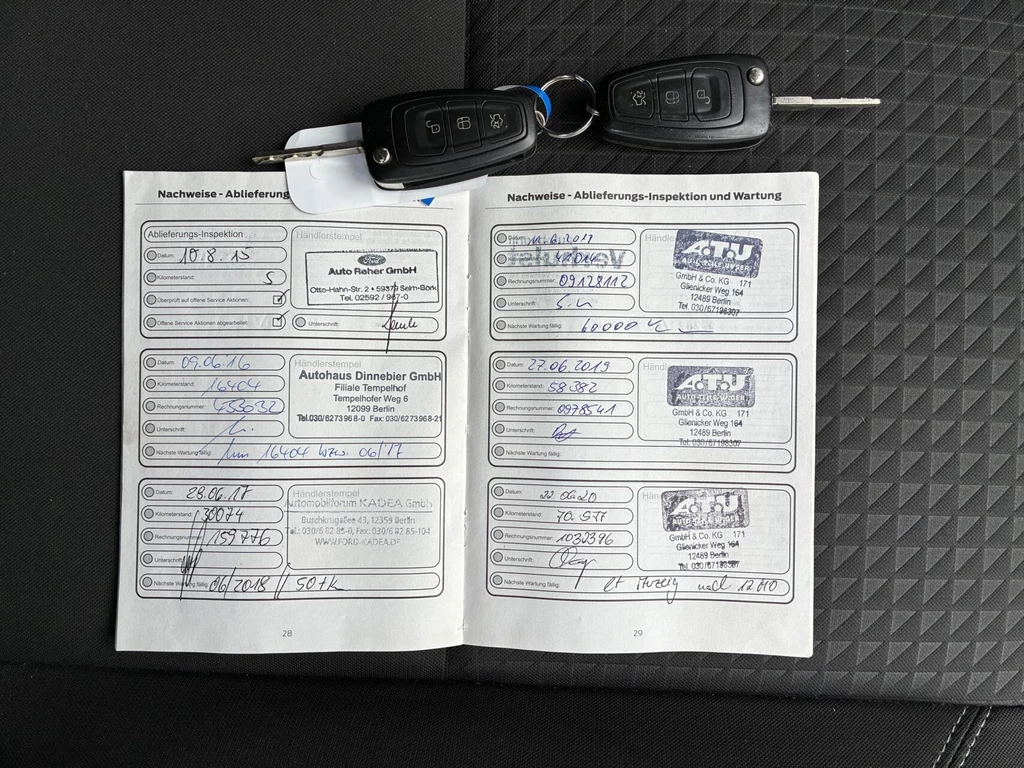 Nachweise - Ablieferung
Ablieferungs-Inspektion
Händlerstempel
Datum: 10.8.15
Kilometerstand: 5
Überprüft auf offene Service Aktionen:
Offene Service Aktionen abgearbeitet:
Ford
Auto Reher GmbH
Otto-Hahn-Str. 2 • 59379 Selm-Bork
Tel. 02592 / 967-0
Unterschrift:
Datum: 09.06.16
Kilometerstand: 16404
Rechnungsnummer: 453032
Unterschrift:
Nächste Wartung fällig: 16404 bzw. 06/17
Händlerstempel
Autohaus Dinnebier GmbH
Filiale Tempelhof
Tempelhofer Weg 6
12099 Berlin
Tel.030/6273968-0 Fax:030/6273968-21
Datum: 28.06.17
Kilometerstand: 30074
Rechnungsnummer: 159776
Unterschrift:
Nächste Wartung fällig: 06/2018 // 50tk
Händlerstempel
Automobilforum KADEA GmbH
Buschkrugallee 43, 12359 Berlin
Tel.: 030/6 82 85-0, Fax: 030/6 82 85-104
WWW.FORD-KADEA.DE
28
Nachweise - Ablieferungs-Inspektion und Wartung
Datum:
Kilometerstand:
Rechnungsnummer: 09128112
Unterschrift:
Nächste Wartung fällig: 60000
Händ
A.T.U
AUTO-TEILE-UNGER
GmbH & Co. KG 171
Glienicker Weg 164
12489 Berlin
Tel. 030/67198307
Datum: 27.06.2019
Kilometerstand: 58382
Rechnungsnummer: 0978541
Unterschrift:
Nächste Wartung fällig:
Händlerstempel
A.T.U
AUTO-TEILE-UNGER
GmbH & Co. KG 171
Glienicker Weg 164
12489 Berlin
Tel. 030/67198307
Datum: 22.06.20
Kilometerstand: 70.577
Rechnungsnummer: 1032396
Unterschrift:
Nächste Wartung fällig: lt Anzeig nach 12 MO
Händ
A.T.U
AUTO-TEILE-UNGER
GmbH & Co. KG 171
Glienicker Weg 164
12489 Berlin
Tel. 030/67198307
29